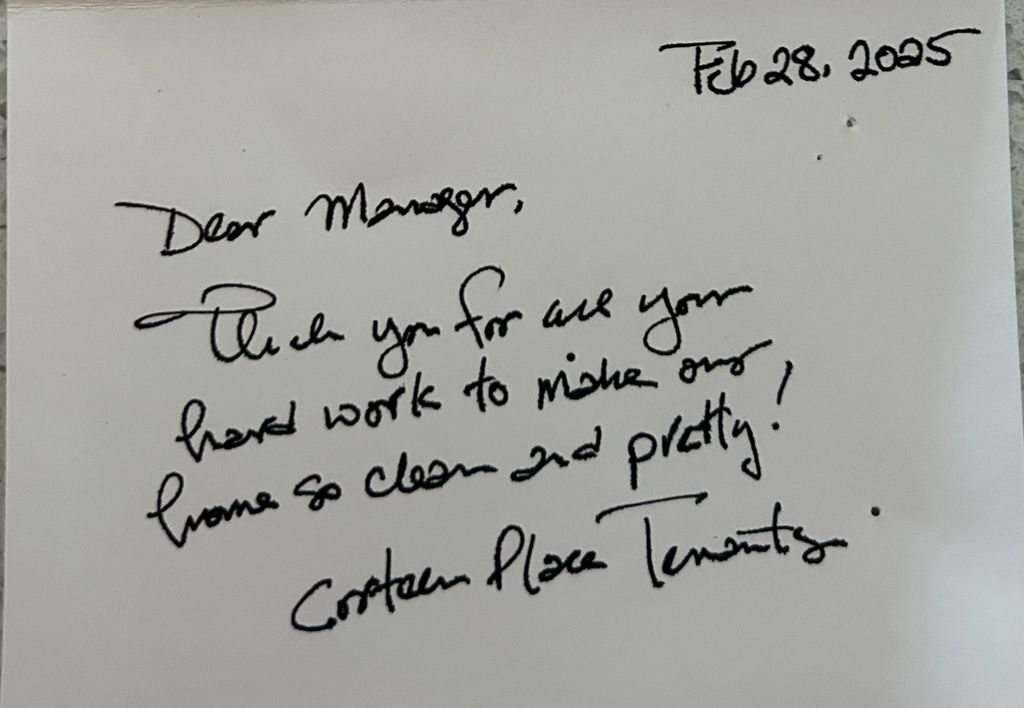 Feb 28, 2025
Dear Manager,
Thank you for all your
hard work to make our
home so clean and pretty!
Corteen Place Tenants